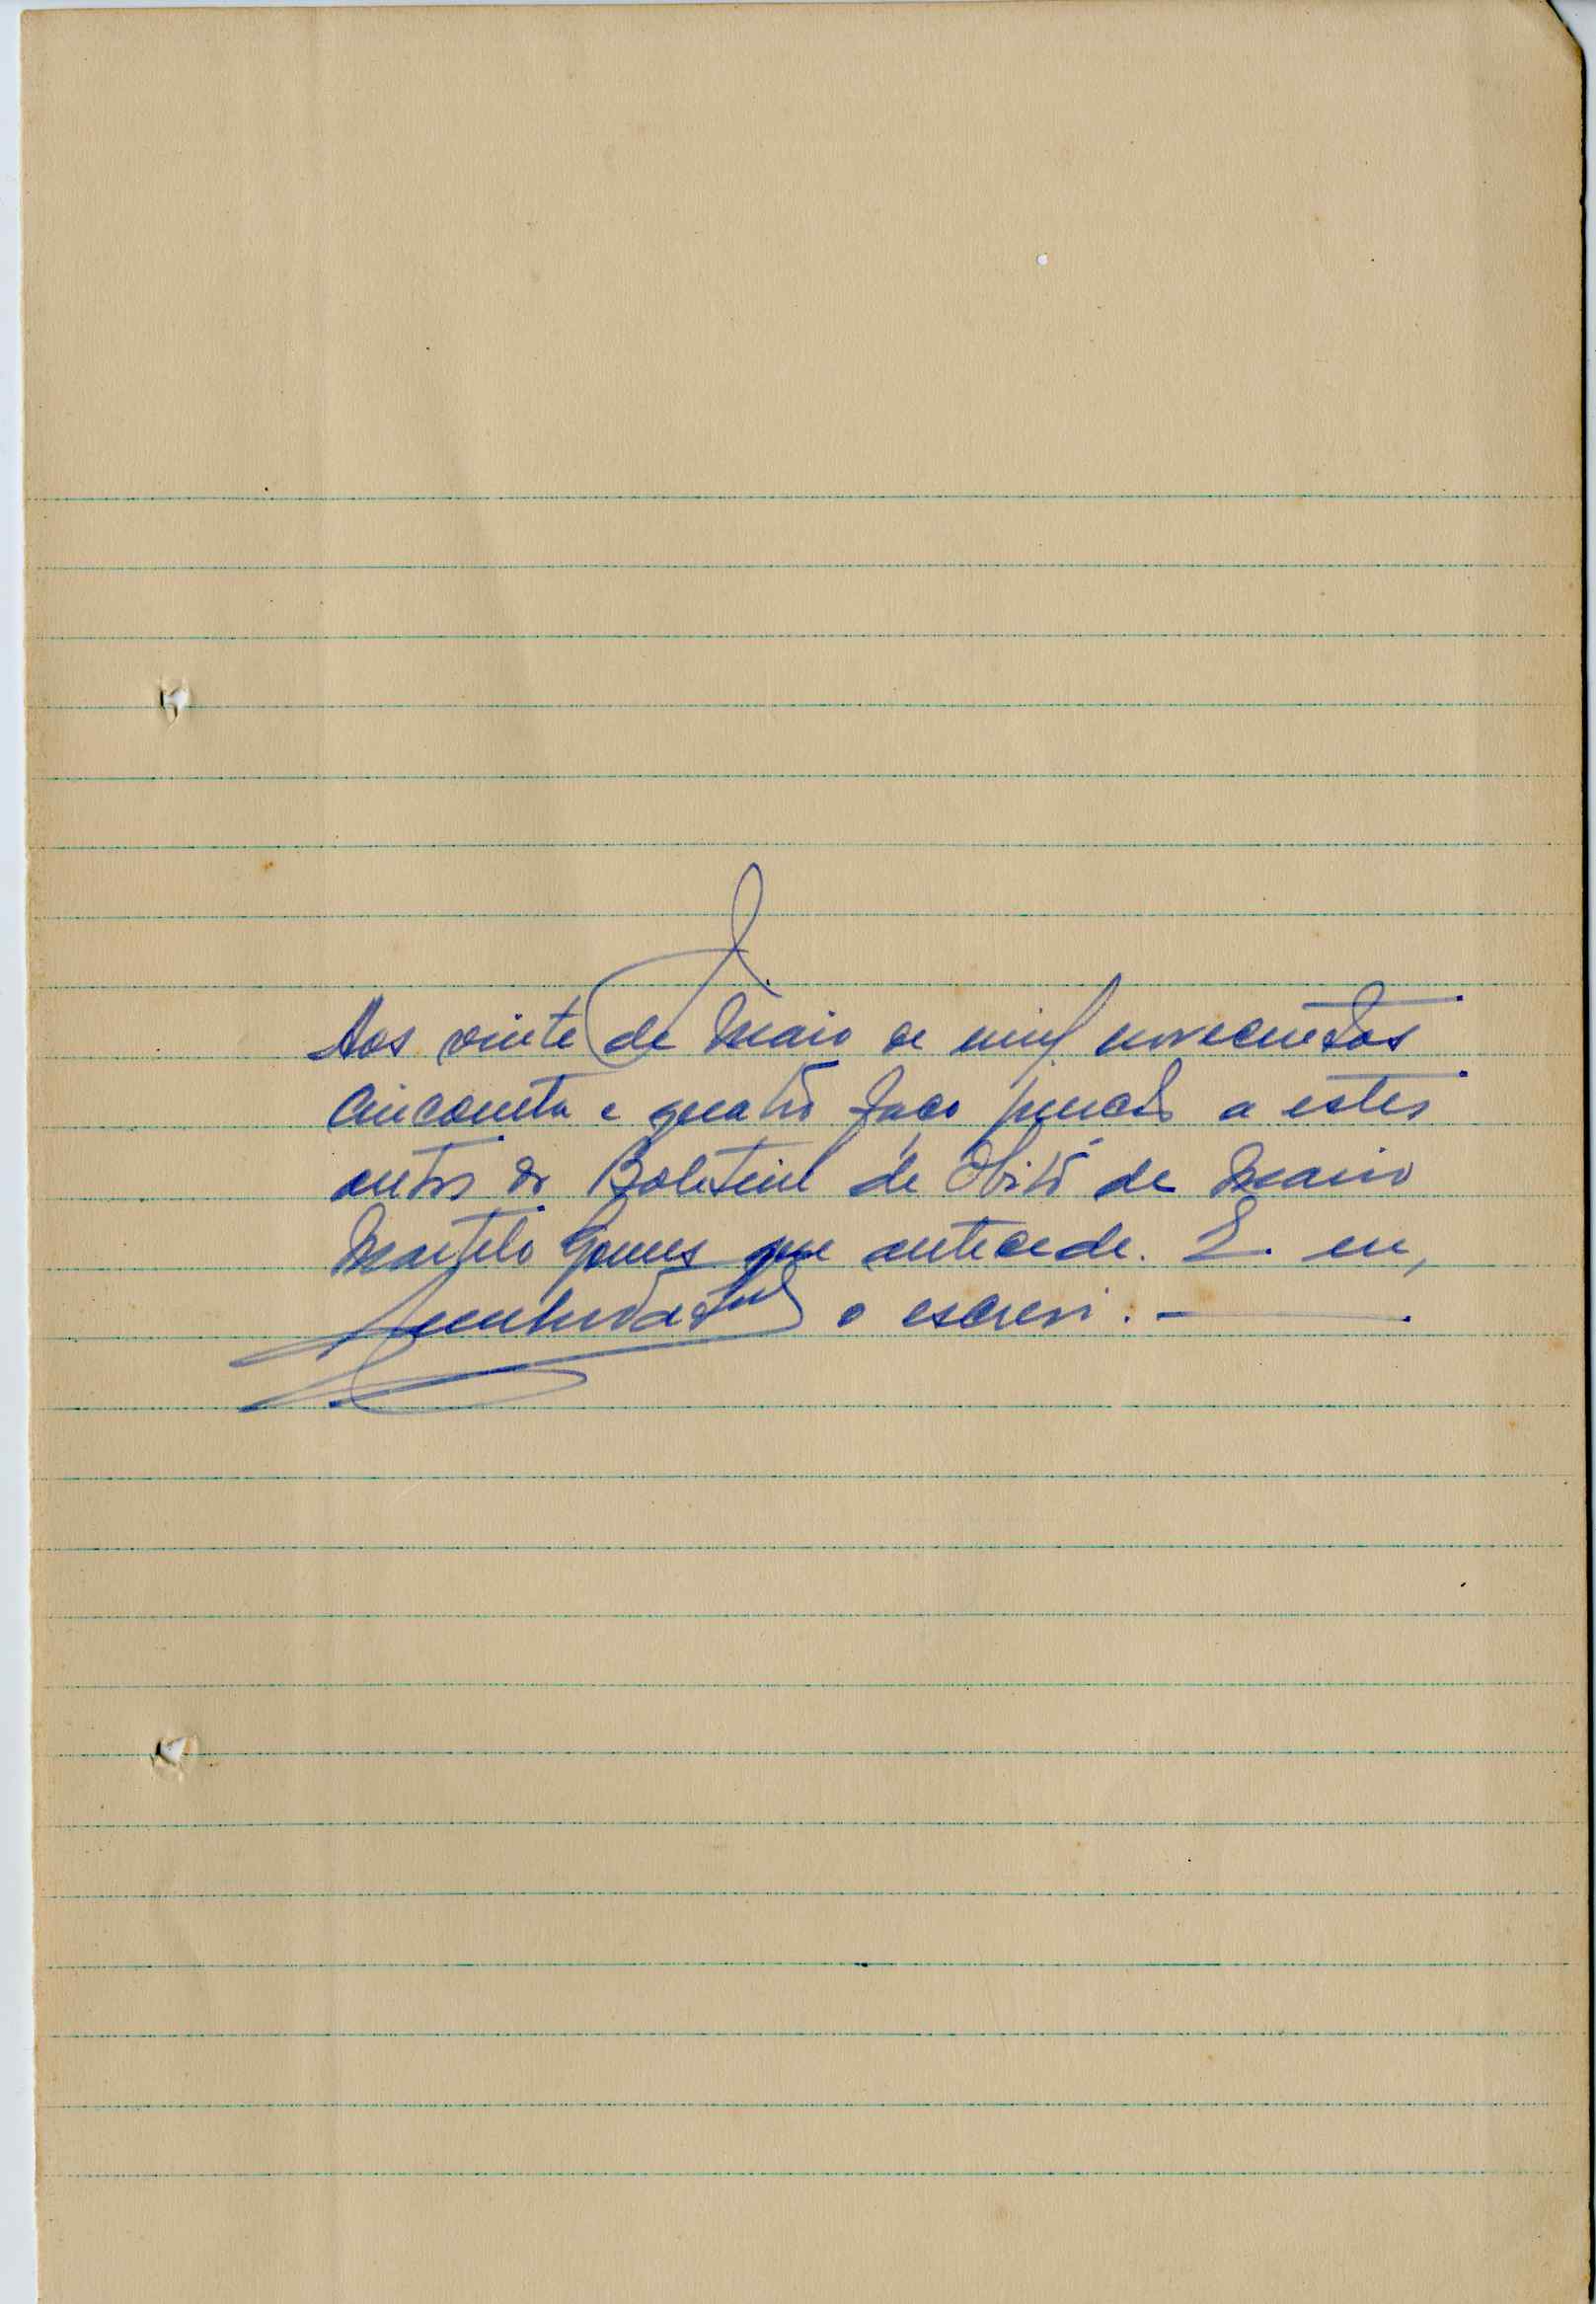 J.
Aos vinte de Maio de mil novecentos
cincoenta e quatro faço juncão a estes
autos do Boletim de Óbito de Mario
Martelo Gomes que antecede. E. eu,
o escrevi. —